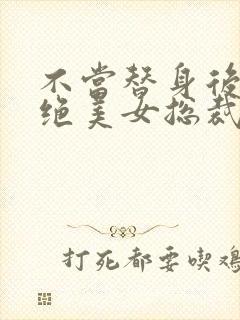 不當替身後
绝美女总裁
打死都要喫鸡